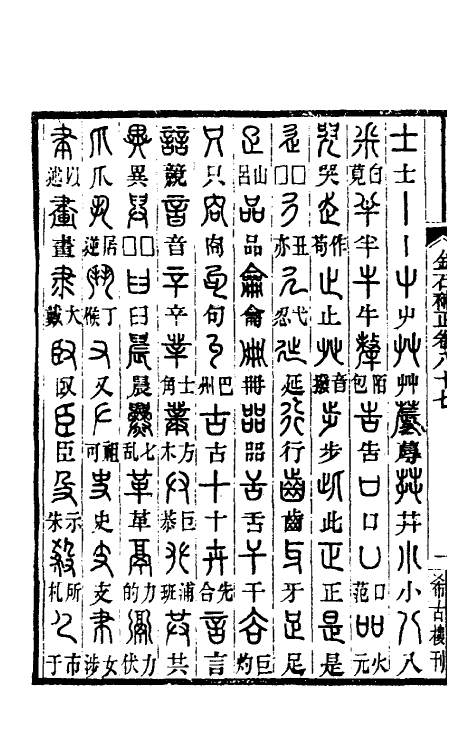 金石補正卷八十七 一 希古樓刊
士士丨丨屮屮艸艸蓐蓐茻茻小小八八
釆白莧半半牛牛犛陌包告告口口凵口范吅火元
哭哭走作苟止止癶音撥步步此此正正是是
辵□□彳丑亦廴弋忍㢟延行行齒齒牙牙足足
疋山呂品品龠龠冊冊㗊器舌舌干干𧮫巨灼
只只㕯㕯句句丩巴州古古十十卅先合言言
誩競音音䇂辛丵士角菐方木𠬞巨恭𠬜浦班共共
異異舁□□臼臼晨晨爨七乱革革鬲力的䰜力伏
爪爪丮居逆鬥丁候又又𠂇祖可史史支支𦘒女涉
聿以逖畫畫隶大戴臤臤臣臣殳示朱殺所札𠘧市于